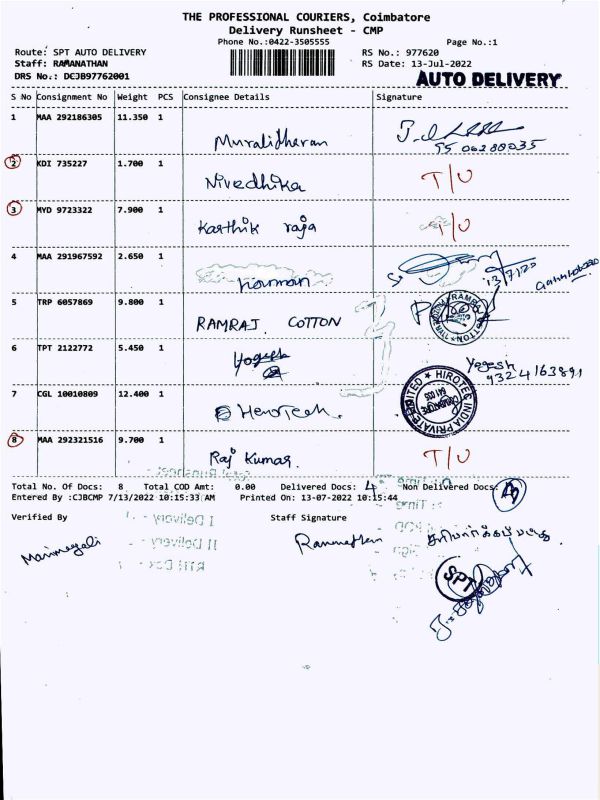 THE PROFESSIONAL COURIERS, Coimbatore
Delivery Runsheet - CMP
Phone No.:0422-3505555 Page No.:1
Route: SPT AUTO DELIVERY RS No.: 977620
Staff: RAMANATHAN RS Date: 13-Jul-2022
DRS No.: DCJB97762001 AUTO DELIVERY
S No Consignment No Weight PCS Consignee Details Signature
1 MAA 292186305 11.350 1
Muralidharan
2 KDI 735227 1.700 1
Nivedhika T/U
3 MYD 9723322 7.900 1
Karthik raja T/U
4 MAA 291967592 2.650 1
13/7/22
5 TRP 6057869 9.800 1
RAMRAJ COTTON
6 TPT 2122772 5.450 1
Yogesh Yogesh
9324163891
7 CGL 10010809 12.400 1
HIROTEC INDIA PRIVATE LIMITED
8 MAA 292321516 9.700 1
Raj Kumar. T/U
Total No. Of Docs: 8 Total COD Amt: 0.00 Delivered Docs: 4 Non Delivered Docs:
Entered By :CJBCMP 7/13/2022 10:15:33 AM Printed On: 13-07-2022 10:15:44
Verified By Staff Signature
SPT